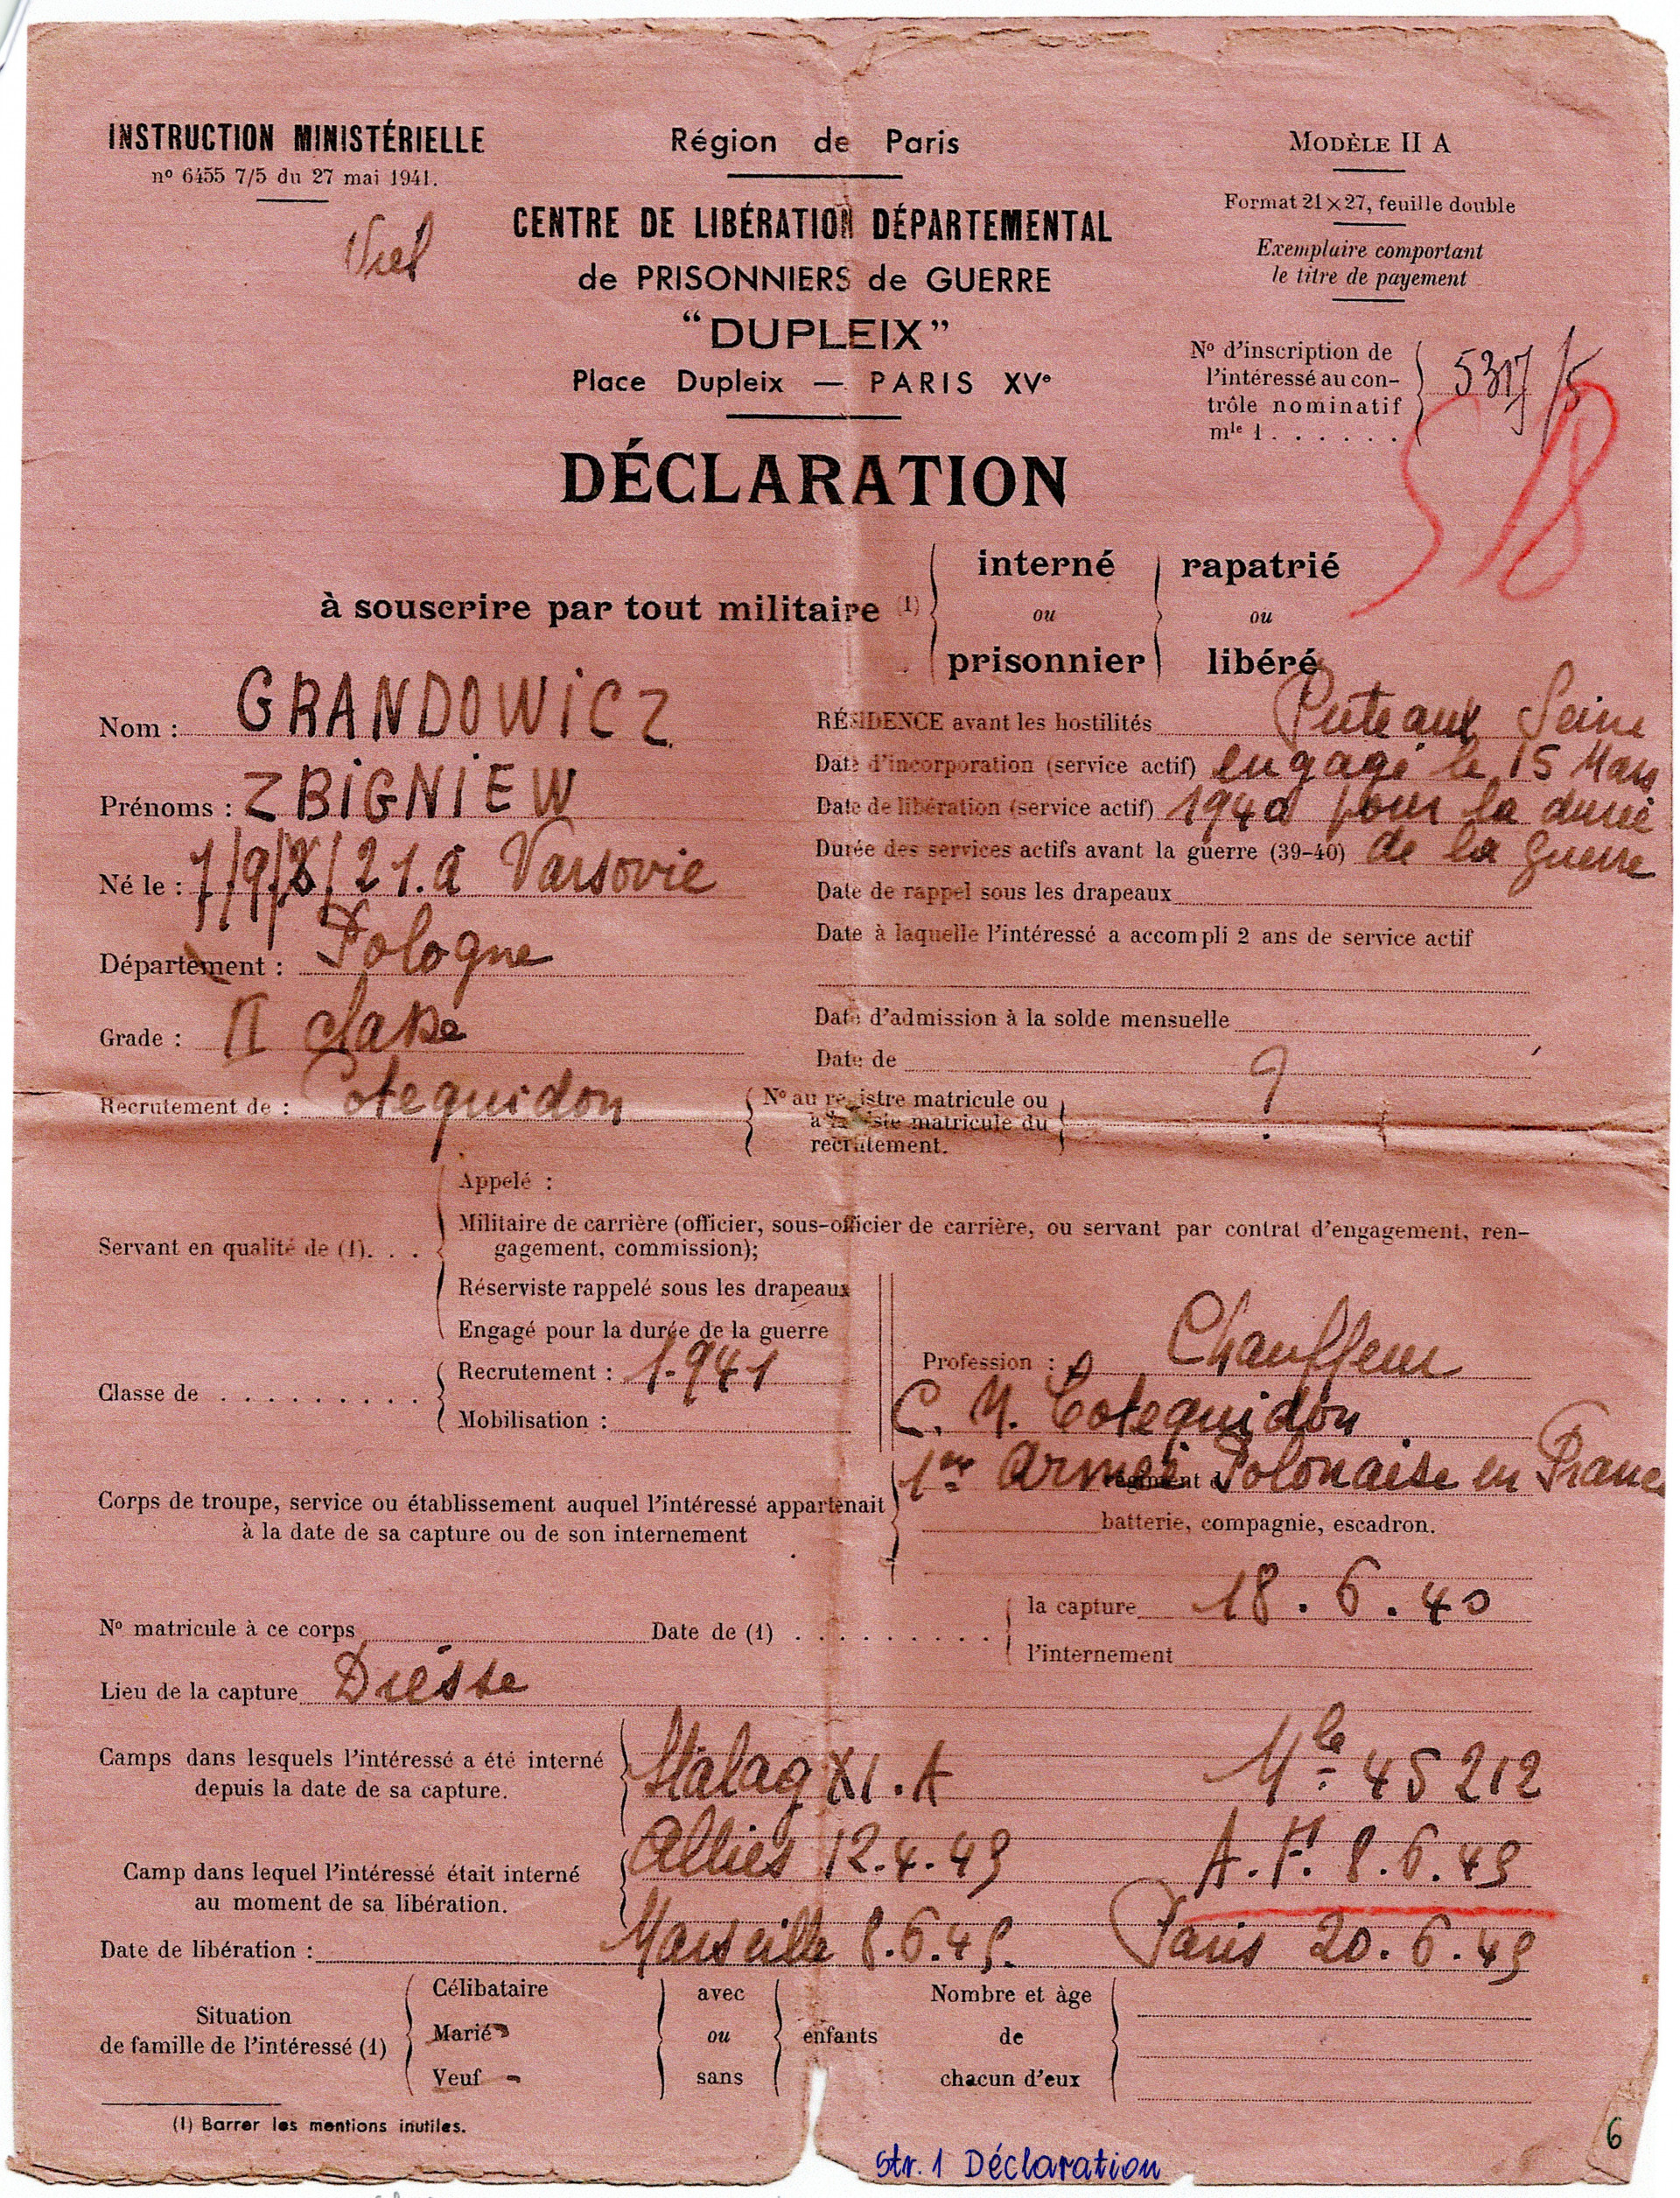 INSTRUCTION MINISTÉRIELLE
nº 6455 7/5 du 27 mai 1941.
Région de Paris
CENTRE DE LIBÉRATION DÉPARTEMENTAL
de PRISONNIERS de GUERRE
"DUPLEIX"
Place Dupleix — PARIS XVe
MODÈLE II A
Format 21×27, feuille double
Exemplaire comportant
le titre de payement
Nº d'inscription de
l'intéressé au con-
trôle nominatif
mle 1 . . . . . .
5317/5
518
DÉCLARATION
à souscrire par tout militaire (1)
interné
ou
prisonnier
rapatrié
ou
libéré
Nom : GRANDOWICZ
Prénoms : ZBIGNIEW
Né le : 7/9/21. à Varsovie
Département : Pologne
Grade : II classe
Recrutement de : Cotequidon
RÉSIDENCE avant les hostilités Puteaux Seine
Date d'incorporation (service actif) engagé le 15 Mars
Date de libération (service actif) 1940 pour la durée
Durée des services actifs avant la guerre (39-40) de la guerre
Date de rappel sous les drapeaux
Date à laquelle l'intéressé a accompli 2 ans de service actif
Date d'admission à la solde mensuelle
Date de
Nº au registre matricule ou
à la liste matricule du
recrutement.
?
Servant en qualité de (1). . .
Appelé :
Militaire de carrière (officier, sous-officier de carrière, ou servant par contrat d'engagement, ren-
gagement, commission);
Réserviste rappelé sous les drapeaux
Engagé pour la durée de la guerre
Classe de . . . . . . . . .
Recrutement : 1.941
Mobilisation :
Profession : Chauffeur
C. M. Cotequidon
Corps de troupe, service ou établissement auquel l'intéressé appartenait
à la date de sa capture ou de son internement
1er Armée Polonaise en France
régiment d
batterie, compagnie, escadron.
Nº matricule à ce corps
Date de (1) . . . . . . . . .
la capture 18.6.40
l'internement
Lieu de la capture
Camps dans lesquels l'intéressé a été interné
depuis la date de sa capture.
Stalag XI.A Mle 45212
Camp dans lequel l'intéressé était interné
au moment de sa libération.
Alliés 12.4.45 A.F. 8.6.45
Date de libération : Marseille 8.6.45. Paris 20.6.45
Situation
de famille de l'intéressé (1)
Célibataire
Marié
Veuf
avec
ou
sans
enfants
Nombre et âge
de
chacun d'eux
(1) Barrer les mentions inutiles.
Str. 1 Déclaration
6